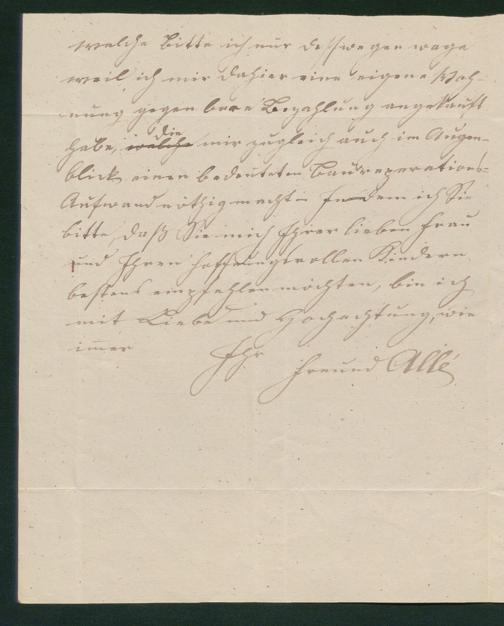 welche Bitte ich nur deßwegen wage
weil ich mir dahier eine eigene Woh-
nung gegen bare Bezahlung angekauft
habe, welche die mir zugleich auch im Augen-
blick einen bedeutenden Baureperations-
Aufwand nöthig macht – Indem ich Sie
bitte, daß Sie mich Ihrer lieben Frau
und Ihren hoffnungsvollen Kindern
bestens empfehlen möchten, bin ich
mit Liebe und Hochachtung, wie
immer
Ihr
Freund Allé